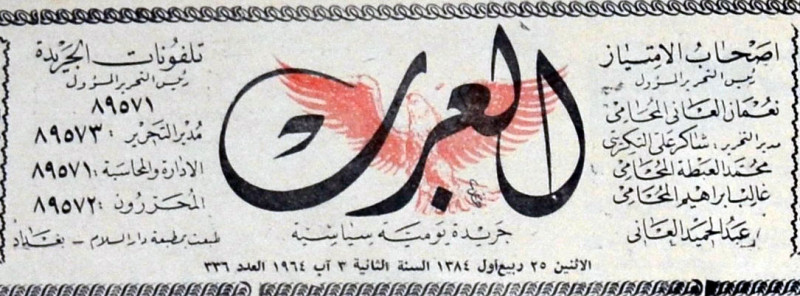 اصحاب الامتياز
رئيس التحرير المسؤول
نعمان العاني المحامي
مدير التحرير : شاكر علي التكريتي
محمد العبطة المحامي
غالب ابراهيم المحامي
عبد الحميد العاني
العرب
جريدة يومية سياسية
تلفونات الجريدة
رئيس التحرير المسؤول
٨٩٥٧١
مدير التحرير : ٨٩٥٧٣
الادارة والمحاسبة : ٨٩٥٧١
المحررون : ٨٩٥٧٢
طبعت بمطبعة دار السلام - بغداد
الاثنين ٢٥ ربيع اول ١٣٨٤ السنة الثانية ٣ آب ١٩٦٤ العدد ٣٣٦